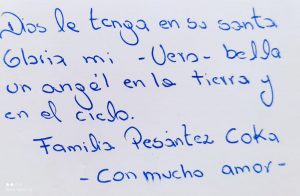 Dios le tenga en su santa
Gloria mi - Vero - bella
un angél en la tierra y
en el cielo.
Familia Pesántez Coka
- Con mucho amor -